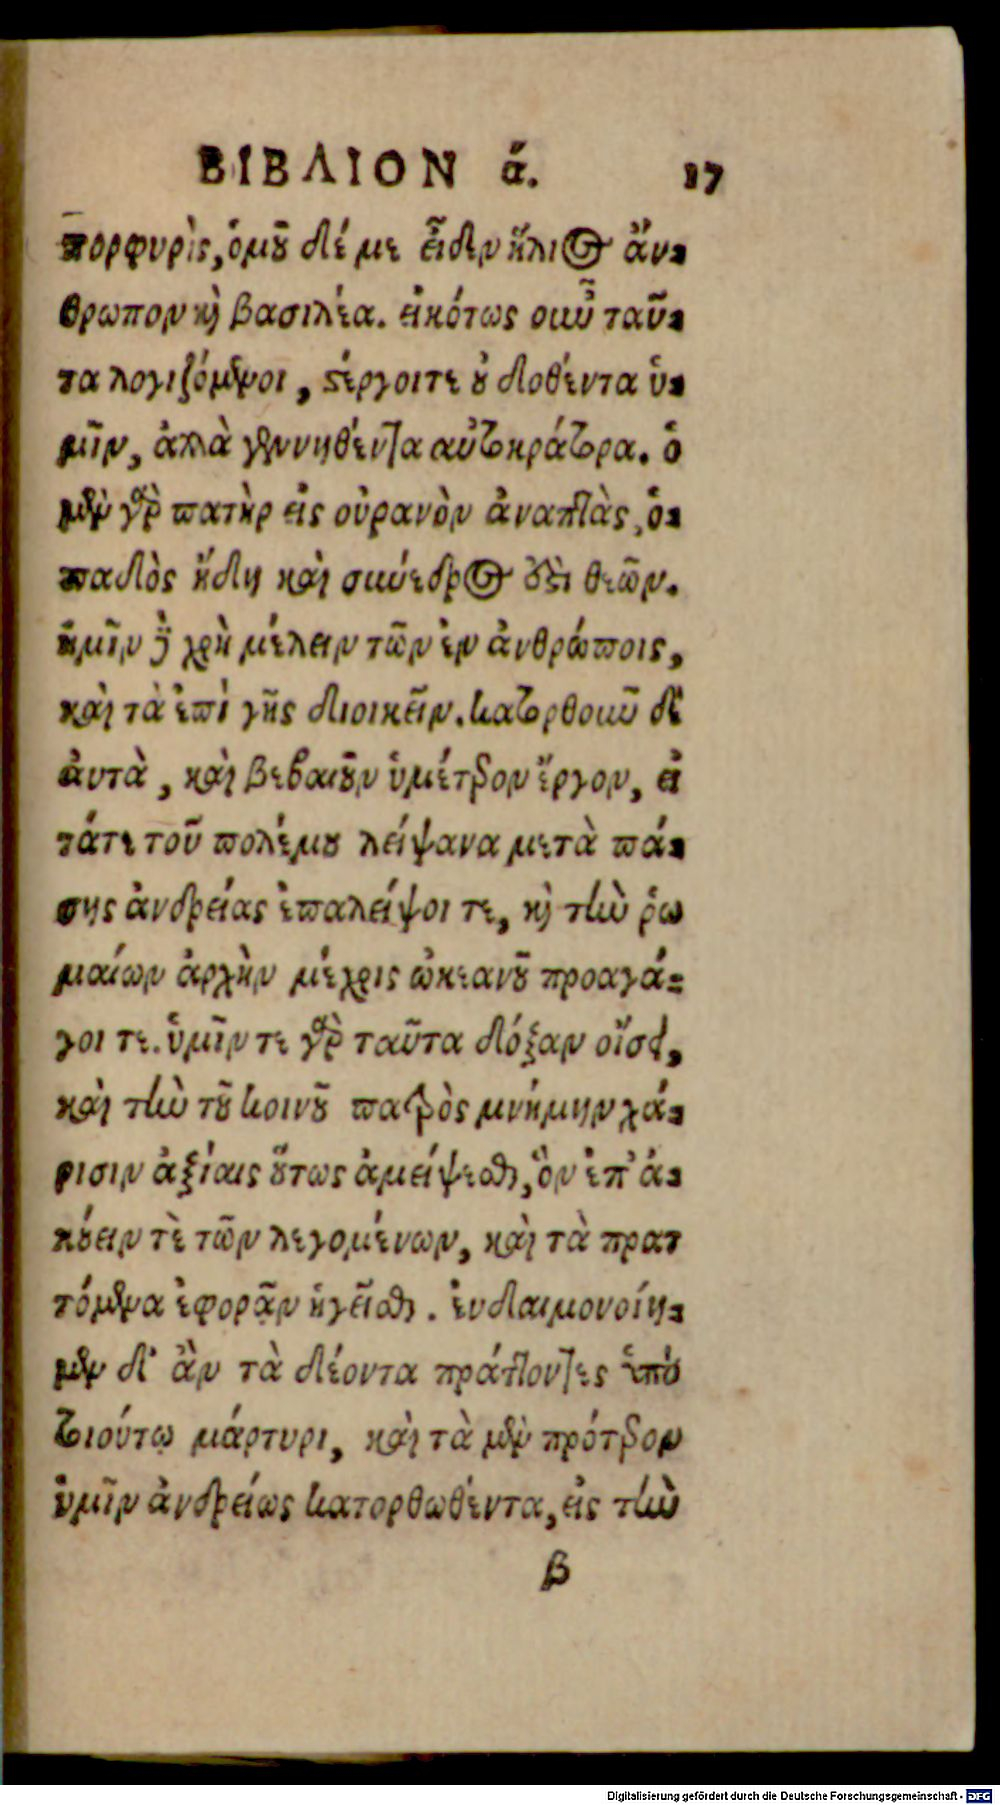 ΒΙΒΛΙΟΝ ά. 17
πορφυρὶς, ὁμοῦ δέ με εἶδεν ἥλιος ἄν-
θρωπον καὶ βασιλέα. εἰκότως οὖν ταῦ-
τα λογιζόμενοι, στέργοιτε οὐ δοθέντα ὑ-
μῖν, ἀλλὰ γεννηθέντα αὐτοκράτορα. ὁ
μὲν γὰρ πατὴρ εἰς οὐρανὸν ἀναπτὰς, ὀ-
παδὸς ἤδη καὶ σύνεδρος ἐστὶ θεῶν.
ἡμῖν δὲ χρὴ μέλειν τῶν ἐν ἀνθρώποις,
καὶ τὰ ἐπὶ γῆς διοικεῖν. κατορθοῦν δὲ
ἀυτὰ, καὶ βεβαιοῦν ὑμέτερον ἔργον, εἰ
τάτε τοῦ πολέμου λείψανα μετὰ πά-
σης ἀνδρείας ἐπαλείψοι τε, καὶ τὴν ῥω
μαίων ἀρχὴν μέχρις ὠκεανοῦ προαγά-
γοι τε. ὑμῖν τε γὰρ ταῦτα δόξαν οἴσει,
καὶ τὴν τοῦ κοινοῦ πατρὸς μνήμην χά-
ρισιν ἀξίαις οὕτως ἀμείψεσθε, ὃν ἐπ' ἀ-
κούειν τὲ τῶν λεγομένων, καὶ τὰ πρατ
τόμενα ἐφορᾷν ἡγεῖσθε. ἐυδαιμονοίη-
μεν δ' ἂν τὰ δέοντα πράττοντες ὑπὸ
τοιούτῳ μάρτυρι, καὶ τὰ μὲν πρότερον
ὑμῖν ἀνδρείως κατορθωθέντα, εἰς τὴν
β
Digitalisierung gefördert durch die Deutsche Forschungsgemeinschaft - DFG